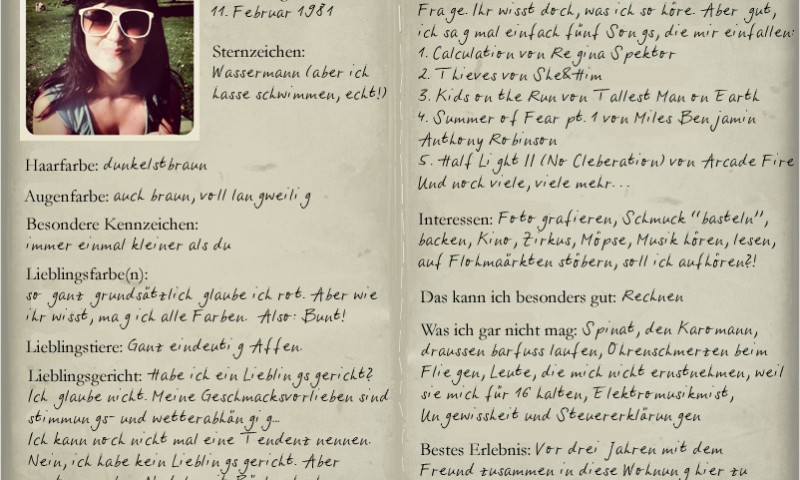 11. Februar 1981
Sternzeichen:
Wassermann (aber ich
hasse schwimmen, echt!)
Haarfarbe: dunkelstbraun
Augenfarbe: auch braun, voll langweilig
Besondere Kennzeichen:
immer einmal kleiner als du
Lieblingsfarbe(n):
so ganz grundsätzlich glaube ich rot. Aber wie
ihr wisst, mag ich alle Farben. Also: Bunt!
Lieblingstiere: Ganz eindeutig Affen
Lieblingsgericht: Habe ich ein Lieblingsgericht?
Ich glaube nicht. Meine Geschmacksvorlieben sind
stimmungs- und wetterabhängig...
Ich kann noch nicht mal eine Tendenz nennen.
Nein, ich habe kein Lieblingsgericht. Aber
Frage. Ihr wisst doch, was ich so höre. Aber gut,
ich sag mal einfach fünf Songs, die mir einfallen:
1. Calculation von Regina Spektor
2. Thieves von She&Him
3. Kids on the Run von Tallest Man on Earth
4. Summer of Fear pt. 1 von Miles Benjamin
Anthony Robinson
5. Half Light II (No Cleberation) von Arcade Fire
Und noch viele, viele mehr...
Interessen: Fotografieren, Schmuck "basteln",
backen, Kino, Zirkus, Möpse, Musik hören, lesen,
auf Flohmaärkten stöbern, soll ich aufhören?!
Das kann ich besonders gut: Rechnen
Was ich gar nicht mag: Spinat, den Karomann,
draussen barfuss laufen, Ohrenschmerzen beim
Fliegen, Leute, die mich nicht ernstnehmen, weil
sie mich für 16 halten, Elektromusikmist,
Ungewissheit und Steuererklärungen
Bestes Erlebnis: Vor drei Jahren mit dem
Freund zusammen in diese Wohnung hier zu